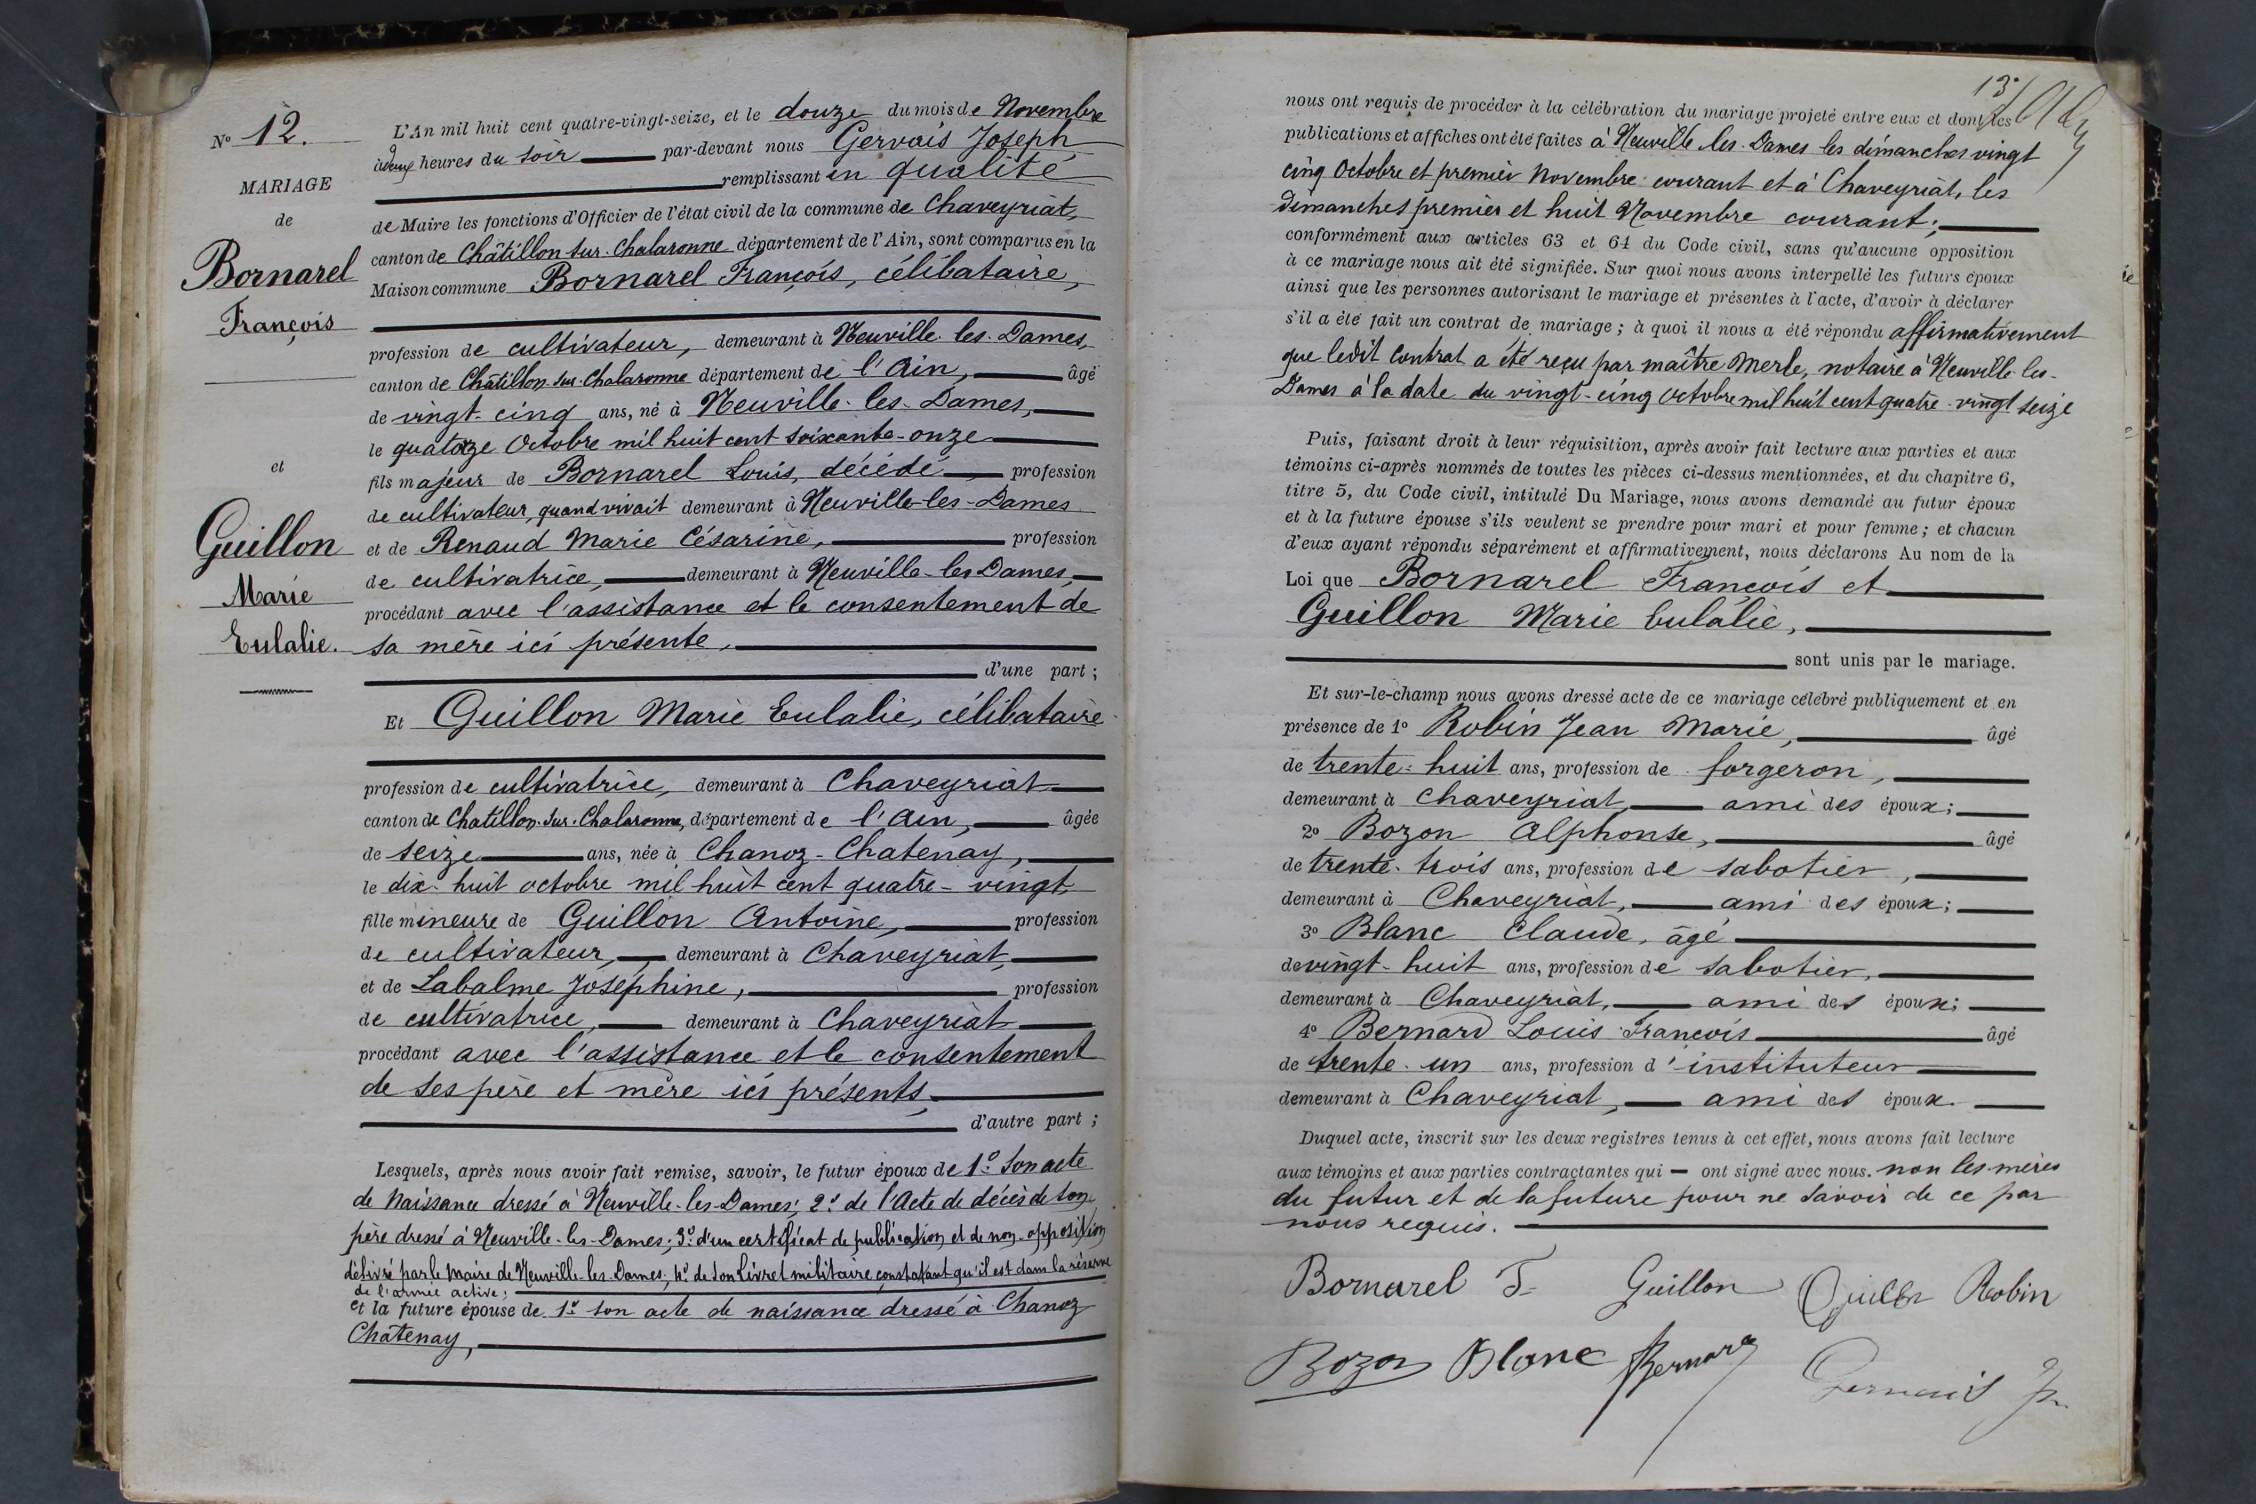 N° 12.
MARIAGE
de
Bornarel
François
et
Guillon
Marie
Eulalie.
L'An mil huit cent quatre-vingt-seize, et le douze du mois de Novembre
à deux heures du soir par-devant nous Gervais Joseph
remplissant en qualité
de Maire les fonctions d'Officier de l'état civil de la commune de Chaveyriat,
canton de Châtillon-sur-Chalaronne département de l'Ain, sont comparus en la
Maison commune Bornarel François, célibataire,
profession de cultivateur, demeurant à Neuville-les-Dames,
canton de Châtillon-sur-Chalaronne département de l'Ain, âgé
de vingt-cinq ans, né à Neuville-les-Dames,
le quatorze Octobre mil huit cent soixante-onze
fils majeur de Bornarel Louis, décédé, profession
de cultivateur, quand vivait demeurant à Neuville-les-Dames
et de Renaud Marie Césarine, profession
de cultivatrice, demeurant à Neuville-les-Dames,
procédant avec l'assistance et le consentement de
sa mère ici présente,
d'une part ;
Et Guillon Marie Eulalie, célibataire
profession de cultivatrice, demeurant à Chaveyriat
canton de Chatillon-sur-Chalaronne, département de l'Ain, âgée
de seize ans, née à Chanoz-Chatenay,
le dix-huit octobre mil huit cent quatre-vingt,
fille mineure de Guillon Antoine, profession
de cultivateur, demeurant à Chaveyriat,
et de Labalme Joséphine, profession
de cultivatrice, demeurant à Chaveyriat
procédant avec l'assistance et le consentement
de ses père et mère ici présents,
d'autre part ;
Lesquels, après nous avoir fait remise, savoir, le futur époux de 1° son acte
de Naissance dressé à Neuville-les-Dames; 2° de l'Acte de décès de son
père dressé à Neuville-les-Dames; 3° d'un certificat de publication et de non-opposition
délivré par le Maire de Neuville-les-Dames; 4° de son livret militaire constatant qu'il est dans la réserve
de l'armée active;
et la future épouse de 1° son acte de naissance dressé à Chanoz
Châtenay,
13
nous ont requis de procéder à la célébration du mariage projeté entre eux et dont les
publications et affiches ont été faites à Neuville-les-Dames les dimanches vingt
cinq Octobre et premier Novembre courant et à Chaveyriat, les
Dimanches premier et huit Novembre courant;
conformément aux articles 63 et 64 du Code civil, sans qu'aucune opposition
à ce mariage nous ait été signifiée. Sur quoi nous avons interpellé les futurs époux
ainsi que les personnes autorisant le mariage et présentes à l'acte, d'avoir à déclarer
s'il a été fait un contrat de mariage ; à quoi il nous a été répondu affirmativement
que ledit Contrat a été reçu par maître Merle, notaire à Neuville-les-
Dames à la date du vingt-cinq Octobre mil huit cent quatre-vingt seize
Puis, faisant droit à leur réquisition, après avoir fait lecture aux parties et aux
témoins ci-après nommés de toutes les pièces ci-dessus mentionnées, et du chapitre 6,
titre 5, du Code civil, intitulé Du Mariage, nous avons demandé au futur époux
et à la future épouse s'ils veulent se prendre pour mari et pour femme ; et chacun
d'eux ayant répondu séparément et affirmativement, nous déclarons Au nom de la
Loi que Bornarel François et
Guillon Marie Eulalie,
sont unis par le mariage.
Et sur-le-champ nous avons dressé acte de ce mariage célébré publiquement et en
présence de 1° Robin Jean Marie, âgé
de trente-huit ans, profession de forgeron,
demeurant à Chaveyriat, ami des époux;
2° Bozon Alphonse, âgé
de trente-trois ans, profession de sabotier,
demeurant à Chaveyriat, ami des époux;
3° Blanc Claude, âgé
de vingt-huit ans, profession de sabotier,
demeurant à Chaveyriat, ami des époux;
4° Bernard Louis François âgé
de trente-un ans, profession d'instituteur
demeurant à Chaveyriat, ami des époux.
Duquel acte, inscrit sur les deux registres tenus à cet effet, nous avons fait lecture
aux témoins et aux parties contractantes qui — ont signé avec nous. non les mères
du futur et de la future pour ne savoir de ce par
nous requis.
Bornarel F. Guillon Guillon Robin
Bozon Blanc Bernard Gervais J.